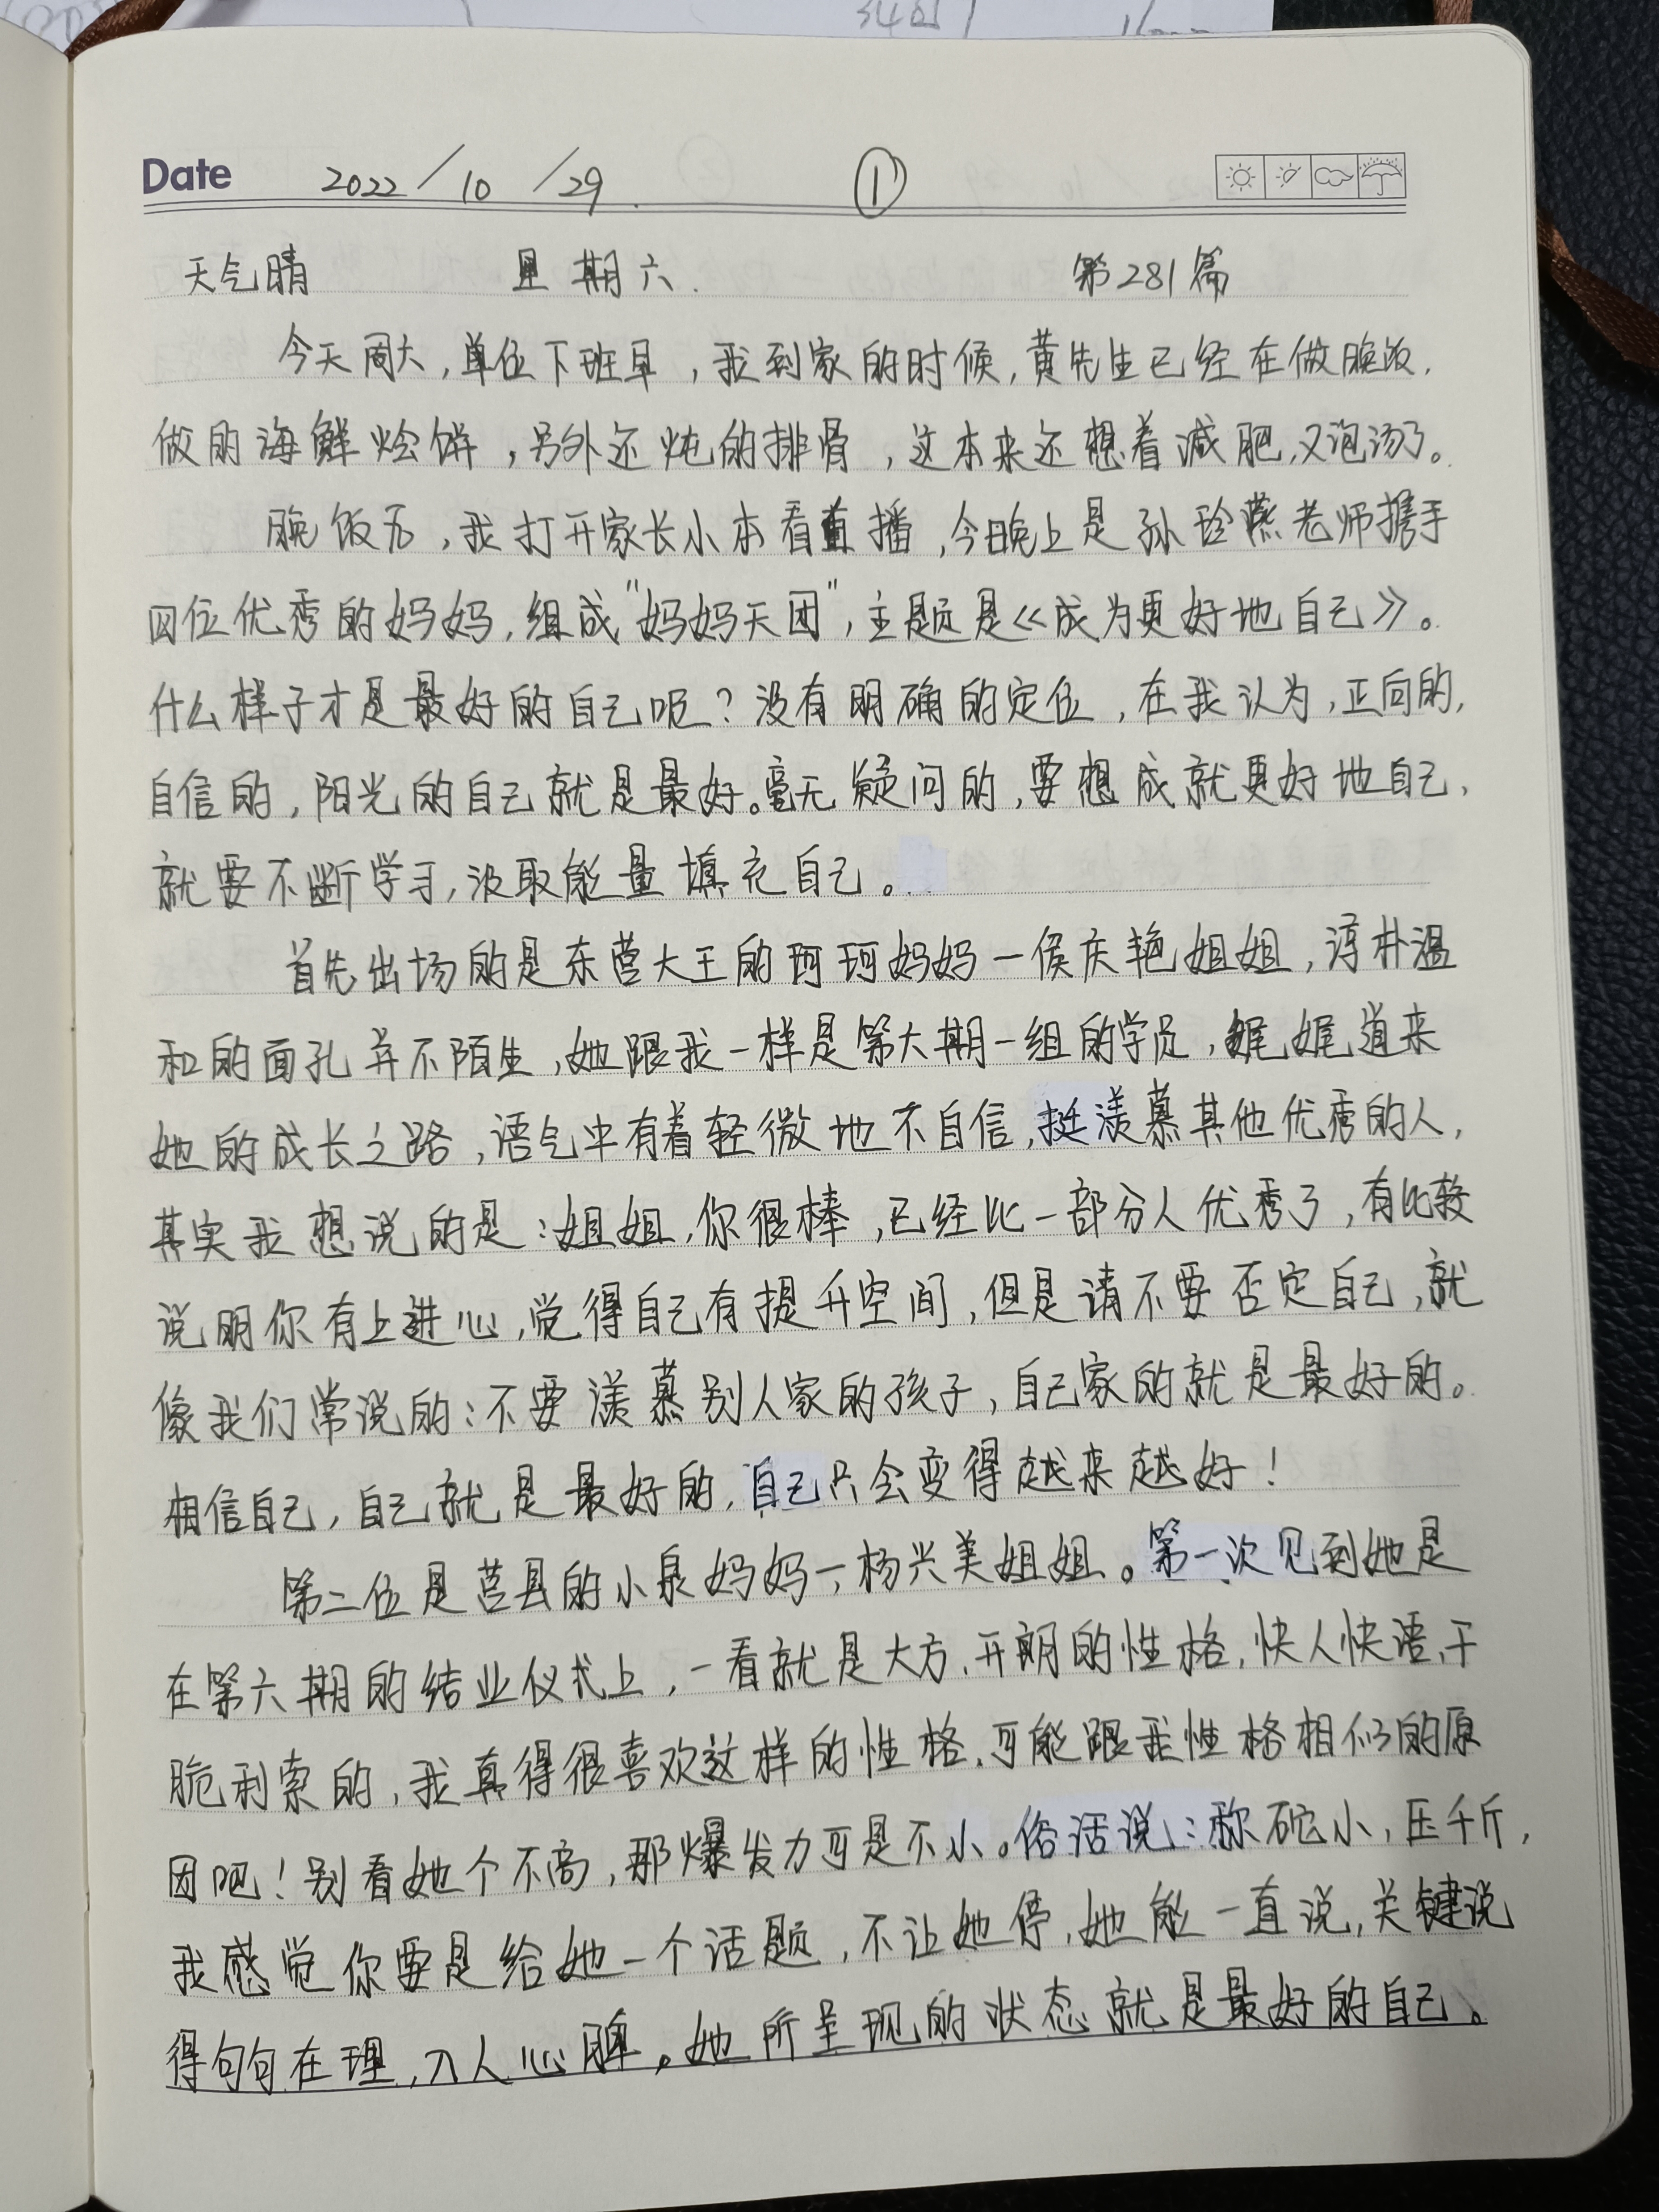 Date 2022/10/29. ①
天气晴 星期六. 第281篇
今天周六,单位下班早,我到家的时候,黄先生已经在做晚饭,
做的海鲜烩饼,另外还炖的排骨,这本来还想着减肥,又泡汤了。
晚饭后,我打开家长小本看直播,今晚上是孙玲燕老师携手
四位优秀的妈妈,组成"妈妈天团",主题是《成为更好地自己》。
什么样子才是最好的自己呢?没有明确的定位,在我认为,正向的,
自信的,阳光的自己就是最好。毫无疑问的,要想成就更好地自己,
就要不断学习,汲取能量填充自己。
首先出场的是东营大王的珂珂妈妈一侯庆艳姐姐,淳朴温
和的面孔并不陌生,她跟我一样是第六期一组的学员,娓娓道来
她的成长之路,语气中有着轻微地不自信,挺羡慕其他优秀的人,
其实我想说的是:姐姐,你很棒,已经比一部分人优秀了,有比较
说明你有上进心,觉得自己有提升空间,但是请不要否定自己,就
像我们常说的:不要羡慕别人家的孩子,自己家的就是最好的。
相信自己,自己就是最好的,自己只会变得越来越好!
第二位是莒县的小泉妈妈一杨兴美姐姐。第一次见到她是
在第六期的结业仪式上,一看就是大方、开朗的性格,快人快语、干
脆利索的,我真得很喜欢这样的性格,可能跟我性格相似的原
因吧!别看她个不高,那爆发力可是不小。俗话说:称砣小,压千斤,
我感觉你要是给她一个话题,不让她停,她能一直说,关键说
得句句在理,入人心脾。她所呈现的状态就是最好的自己。